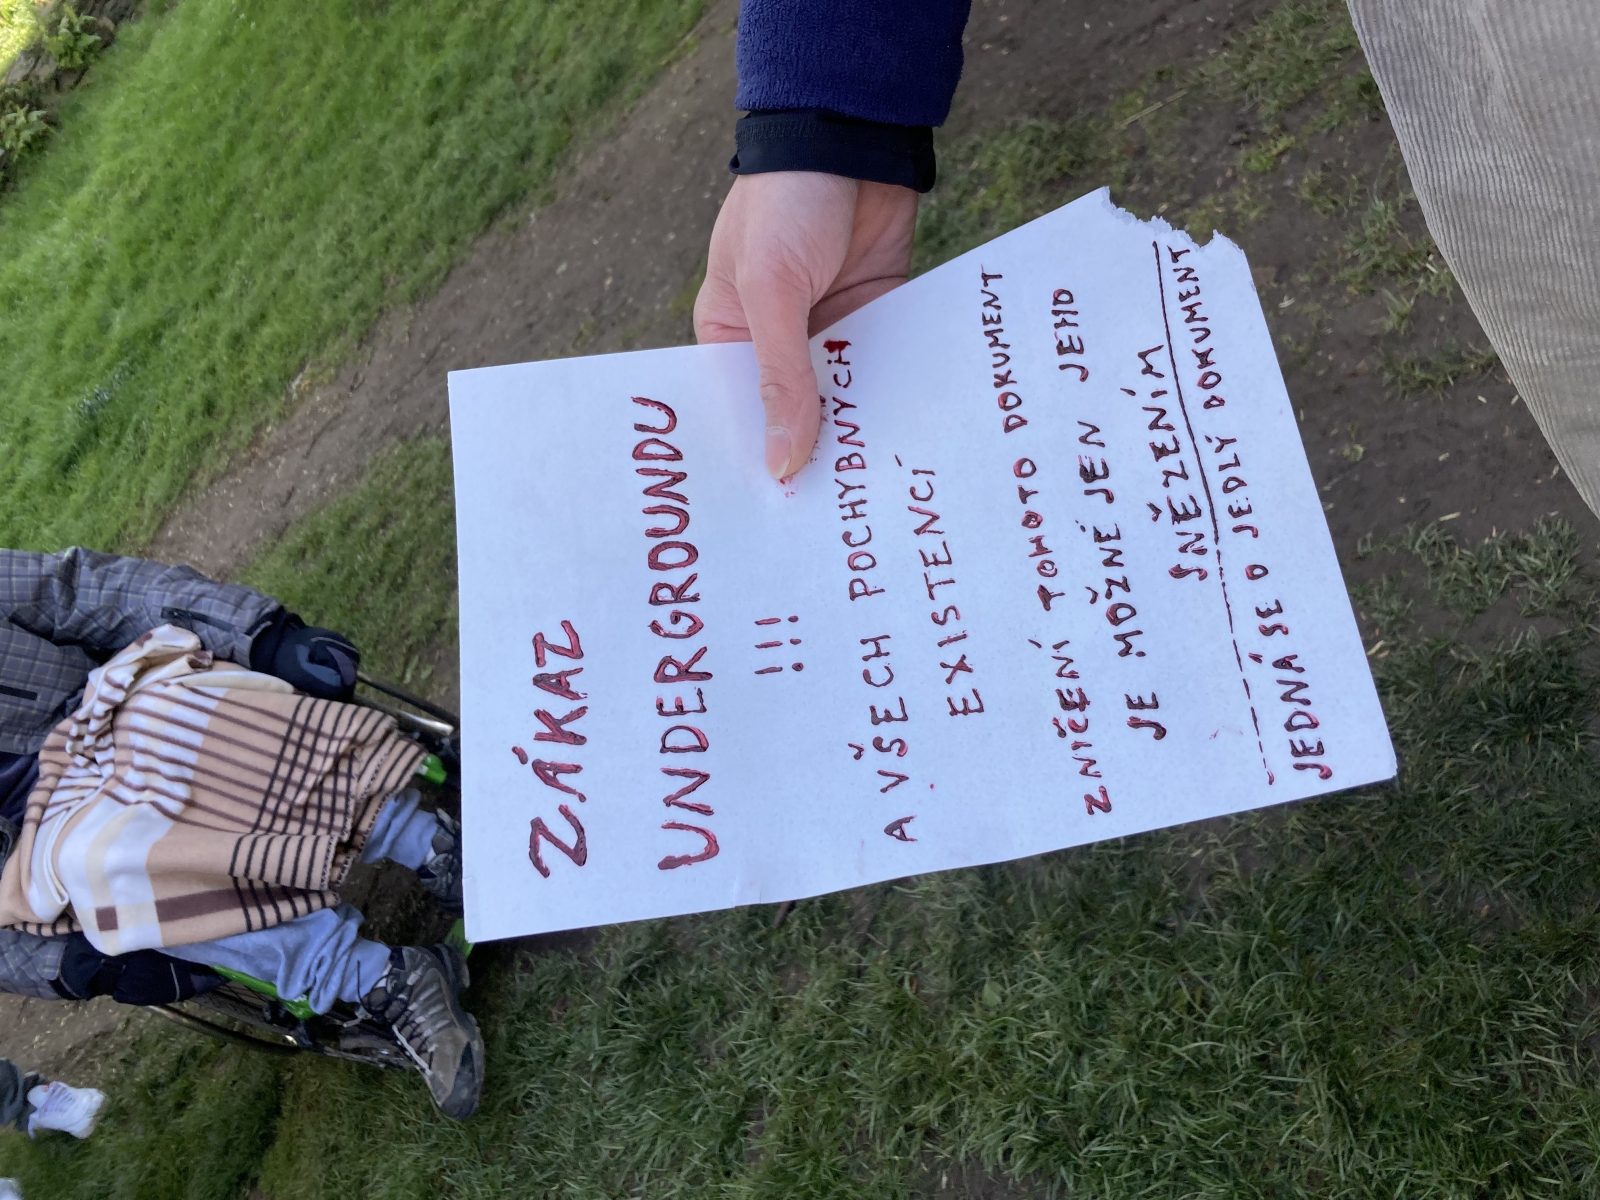 ZÁKAZ
UNDERGROUNDU
!!!
A VŠECH POCHYBNÝCH
EXISTENCÍ
ZNIČENÍ TOHOTO DOKUMENT
JE MOŽNÉ JEN JEHO
SNĚZENÍM
JEDNÁ SE O JEDLÝ DOKUMENT